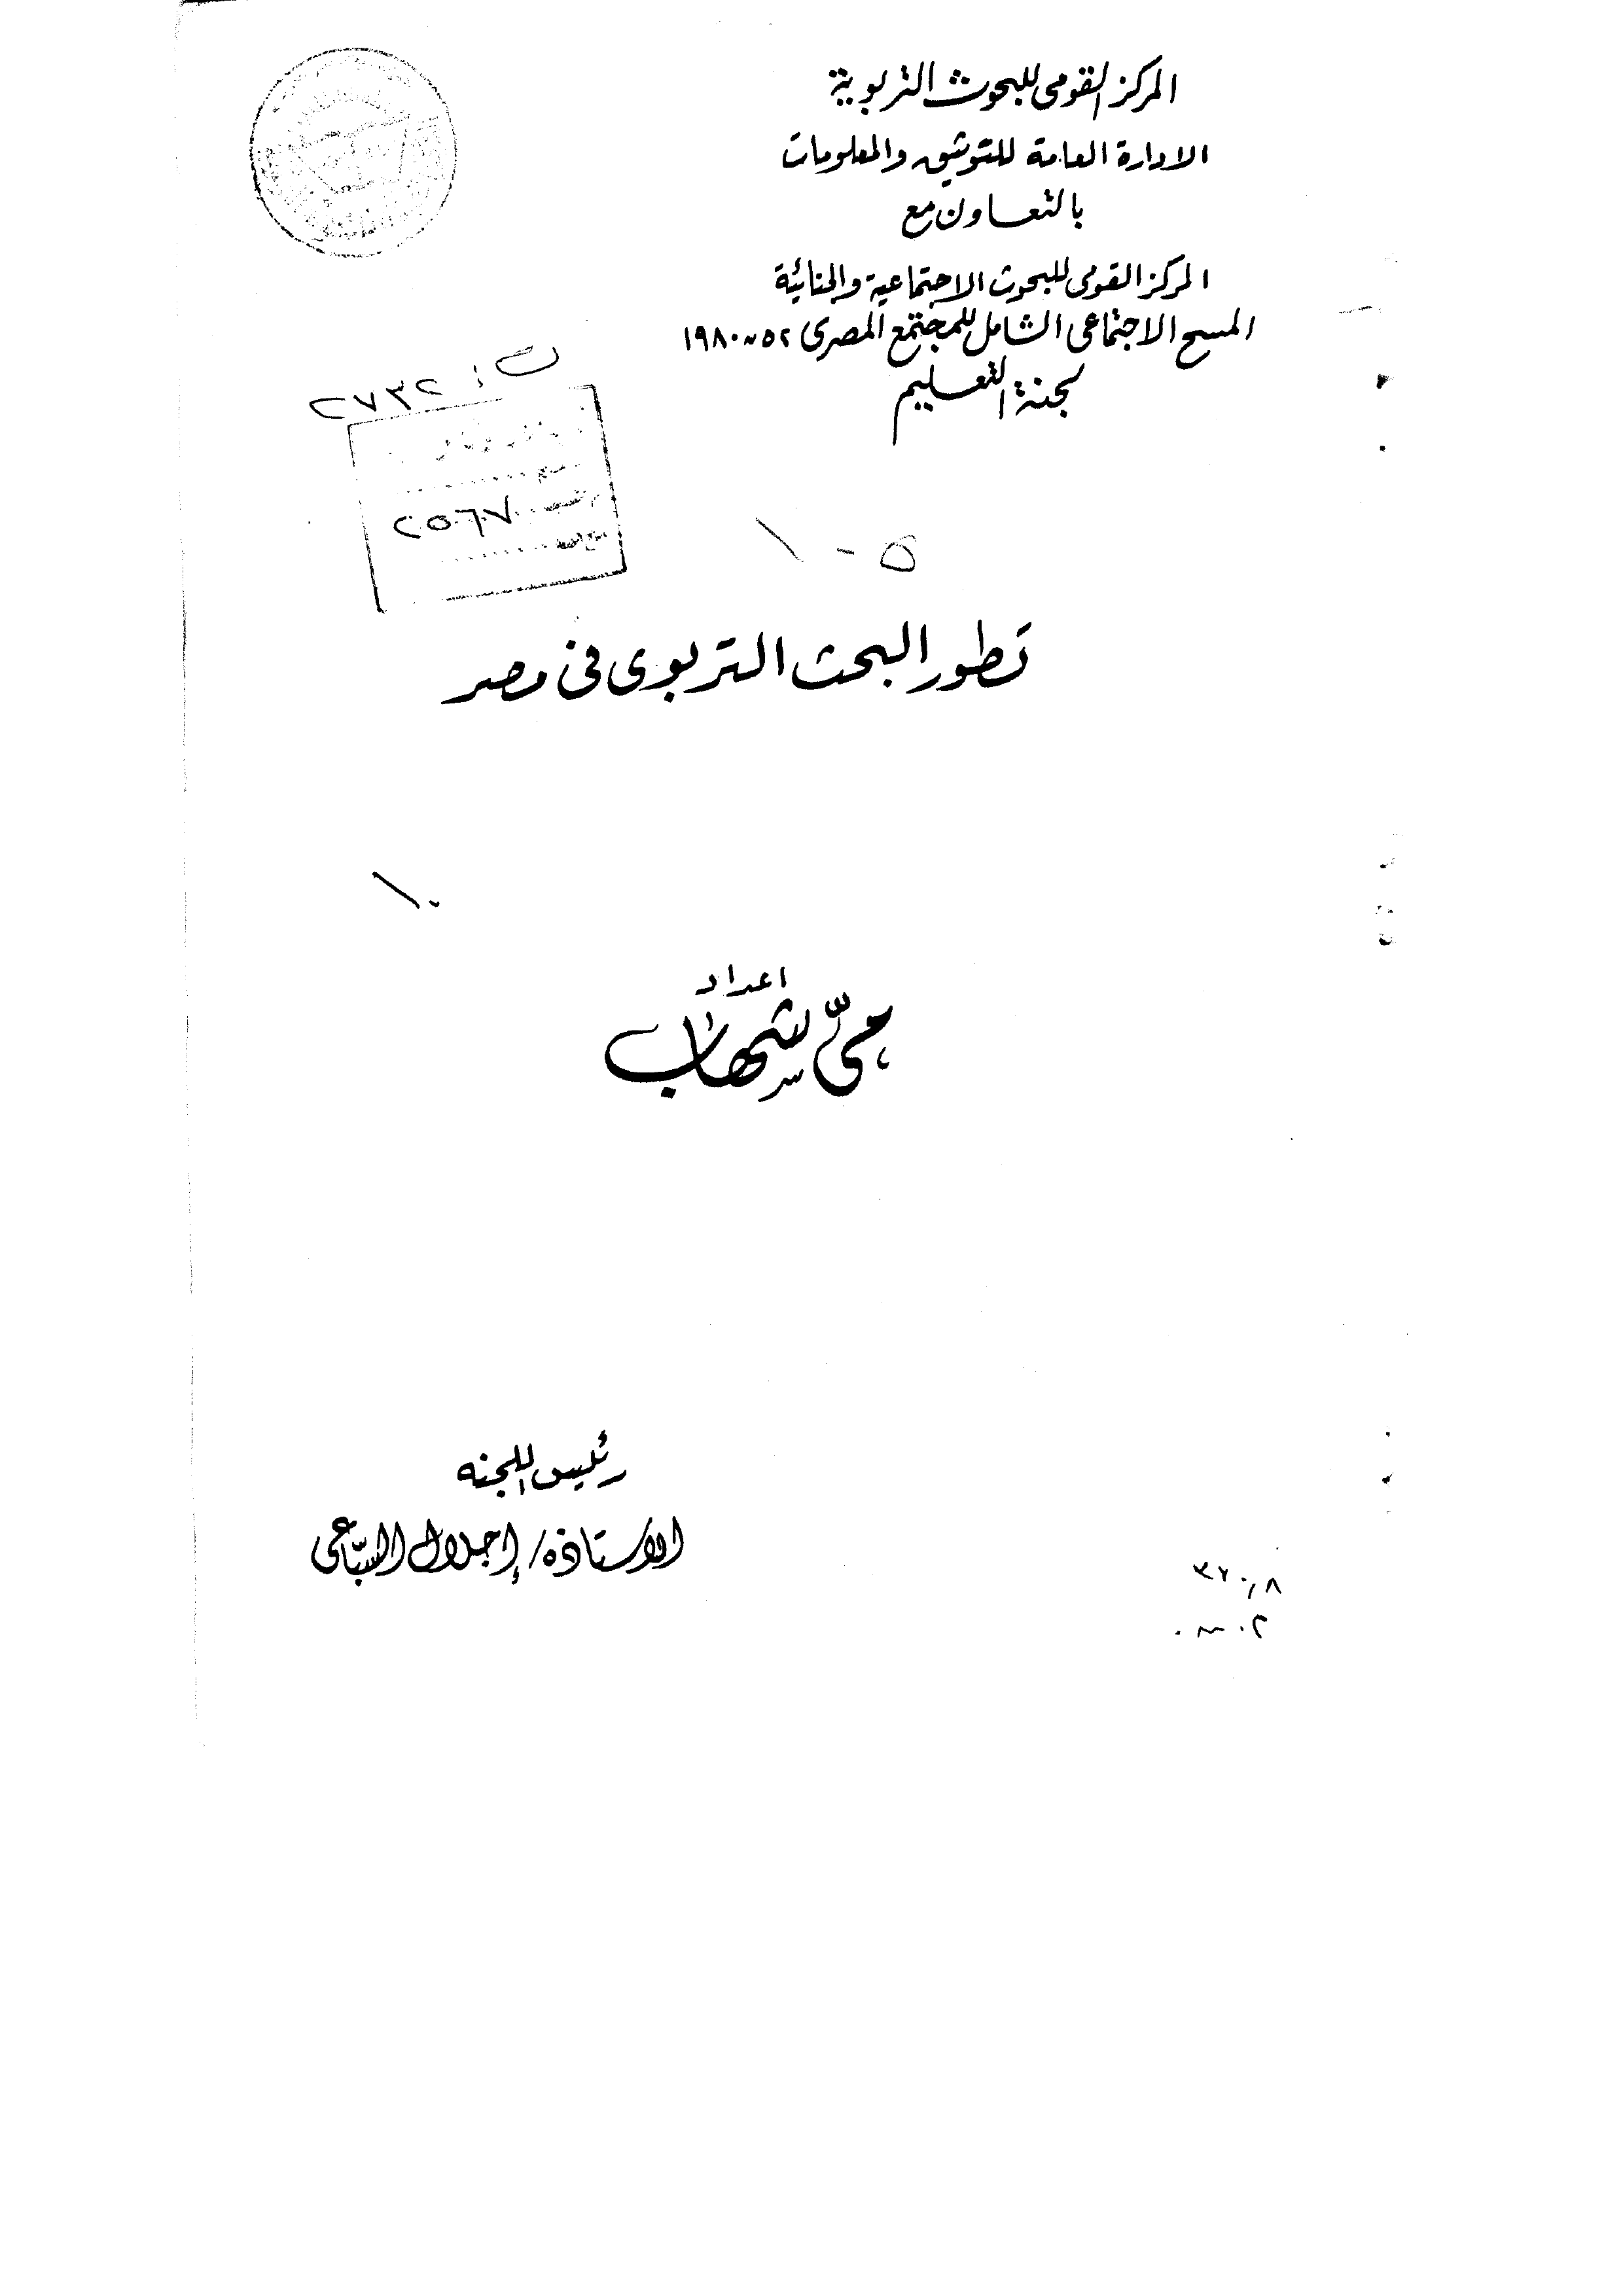 المركز القومى للبحوث التربوية
الادارة العامة للتوثيق والمعلومات
بالتعاون مع
المركز القومى للبحوث الاجتماعية والجنائية
المسح الاجتماعى الشامل للمجتمع المصرى ٥٢ ~ ١٩٨٠
لجنة التعليم
ت: ٢٧٣٢
٢٥٦٧
٥ - ١
تطور البحث التربوى فى مصر
اعداد
شهاب
رئيس اللجنه
الاستاذه/ إجلال السباعى
٣٧٠,٨